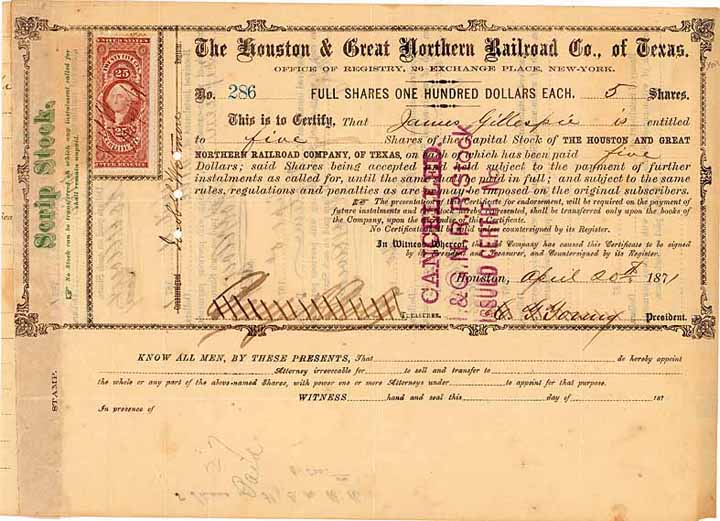 The Houston & Great Northern Railroad Co., of Texas.
OFFICE OF REGISTRY, 26 EXCHANGE PLACE, NEW-YORK.
No. 286 FULL SHARES ONE HUNDRED DOLLARS EACH. 5 Shares.
This is to Certify, That James Gillespie is entitled
to five Shares of the Capital Stock of THE HOUSTON AND GREAT
NORTHERN RAILROAD COMPANY, OF TEXAS, on each of which has been paid five
Dollars; said Shares being accepted and held subject to the payment of further
instalments as called for, until the same shall be paid in full; and subject to the same
rules, regulations and penalties as are or may be imposed on the original subscribers.
The presentation of this Certificate for endorsement, will be required on the payment of
future instalments and the Stock hereby represented, shall be transferred only upon the books of
the Company, upon the surrender of this Certificate.
No Certificate will be valid unless countersigned by its Register.
In Witness Whereof, the said Company has caused this Certificate to be signed
by its President and Treasurer, and Countersigned by its Register.
Houston, April 20th 1871
TREASURER.
C. G. Young President.
CANCELLED
I. & G. N. R. R. STOCK
ISSUED CERTIF. N
Scrip Stock.
No Stock can be transferred on which any instalment called for
shall remain unpaid.
25
Countersigned
Register.
STAMP.
KNOW ALL MEN, BY THESE PRESENTS, That do hereby appoint
Attorney irrevocable for to sell and transfer to
the whole or any part of the above-named Shares, with power one or more Attorneys under to appoint for that purpose.
WITNESS hand and seal this day of 187
In presence of
Paid